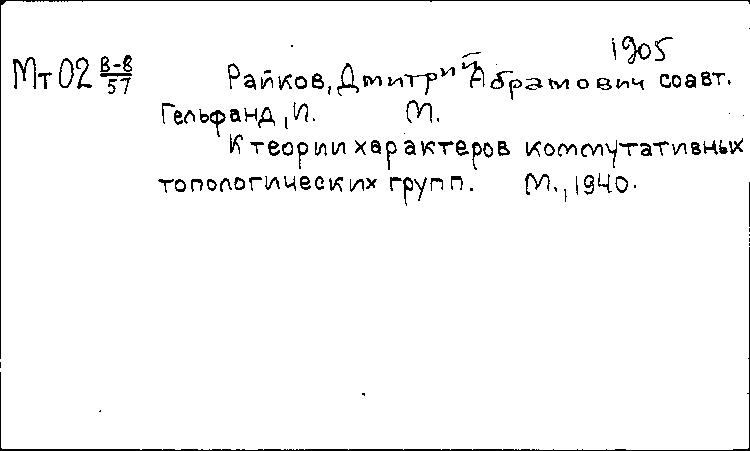 1905
Мт 02 В-8/57 Райков, Дмитрий Абрамович соавт.
Гельфанд, И. М.
К теории характеров коммутативных
топологических групп. М., 1940.